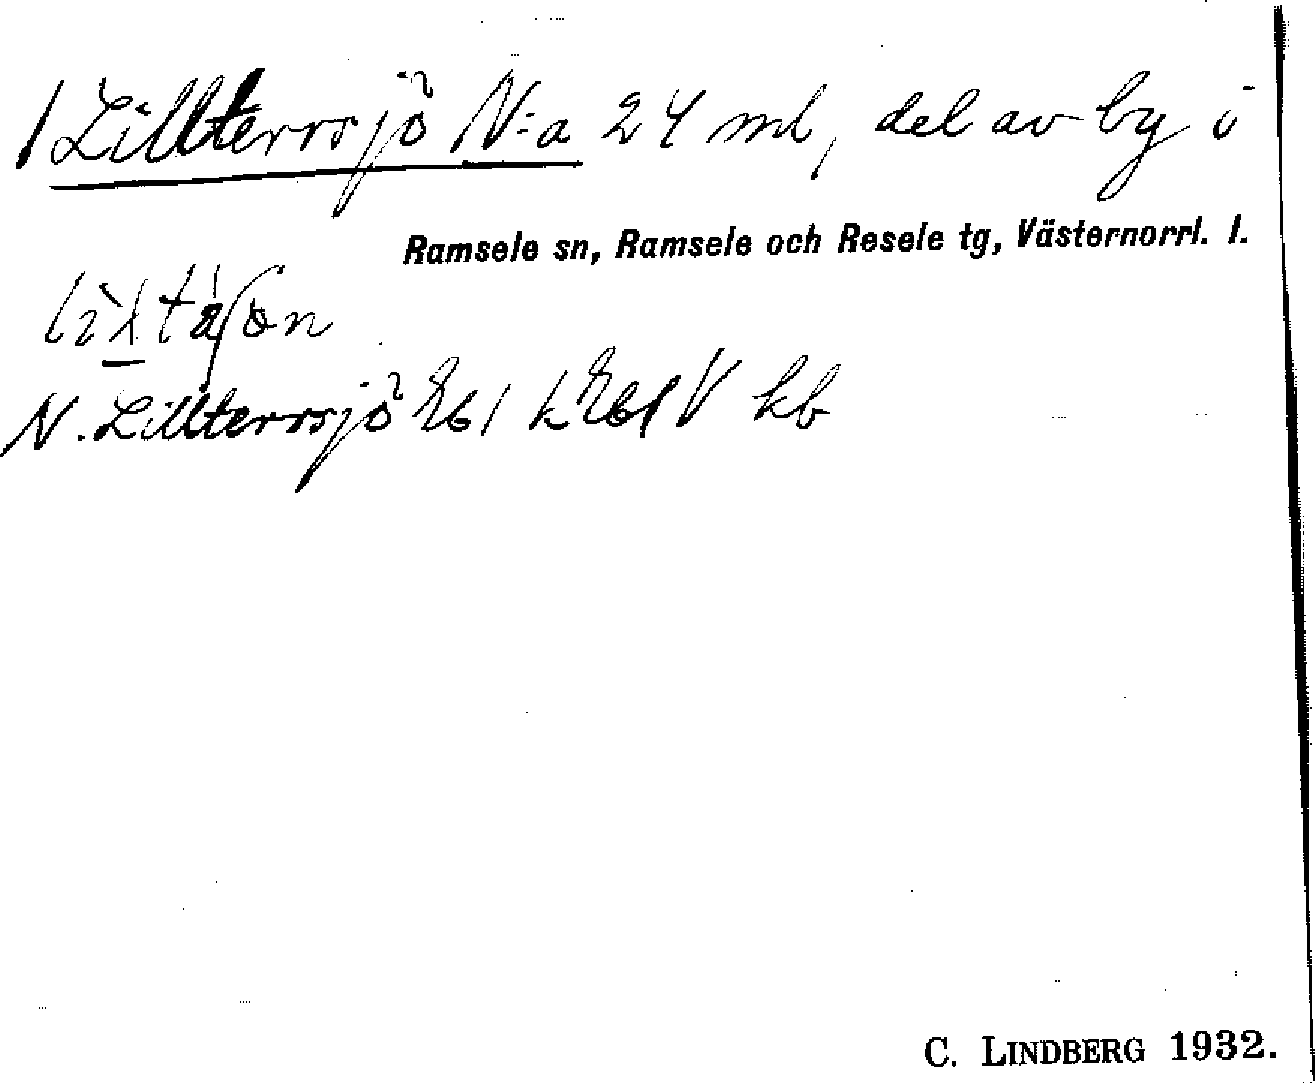 Lillterrsjö N:a 24 ml, del av by i
Ramsele sn, Ramsele och Resele tg, Västernorrl. l.
N. Lillterrsjö Eb1 k Eb1 V kb
C. LINDBERG 1932.